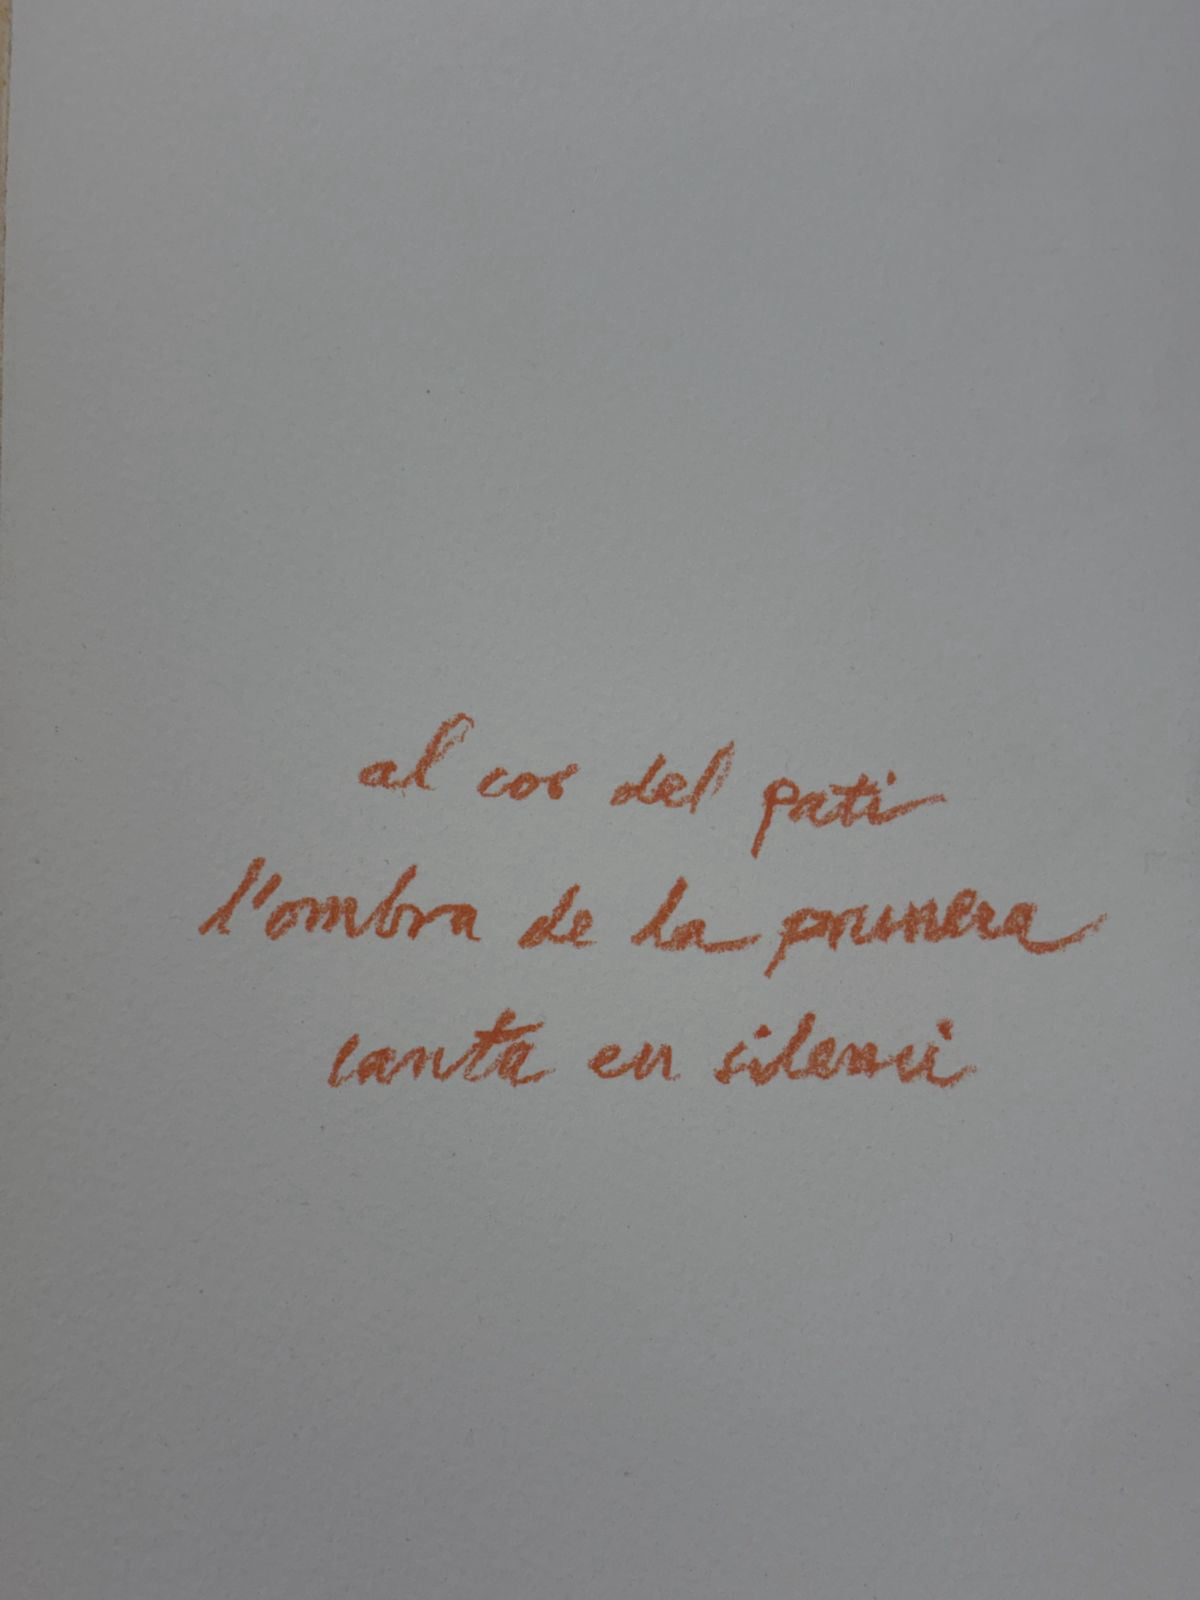 al cor del pati
l'ombra de la prunera
canta en silenci